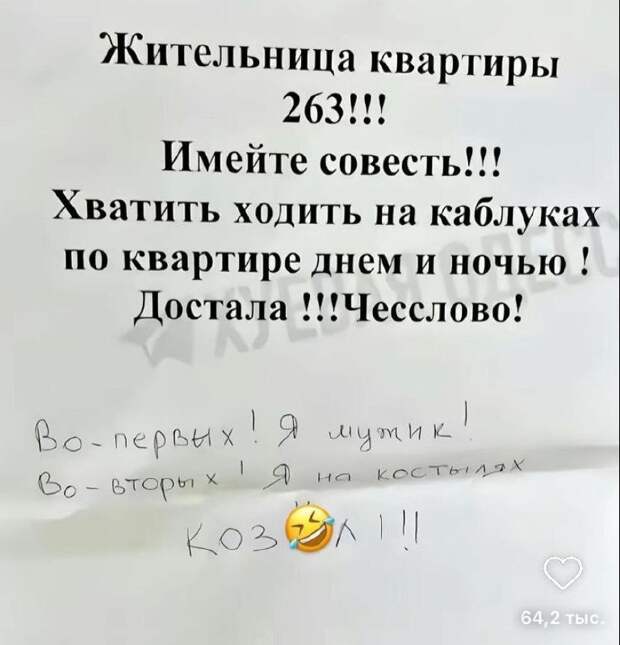 Жительница квартиры
263!!!
Имейте совесть!!!
Хватить ходить на каблуках
по квартире днем и ночью !
Достала !!!Чесслово!
ХУЕВАЯ ОДЕСС
Во-первых! Я мужик!
Во-вторых! Я на костылях
КОЗ🤣Л!!!
64,2 тыс.